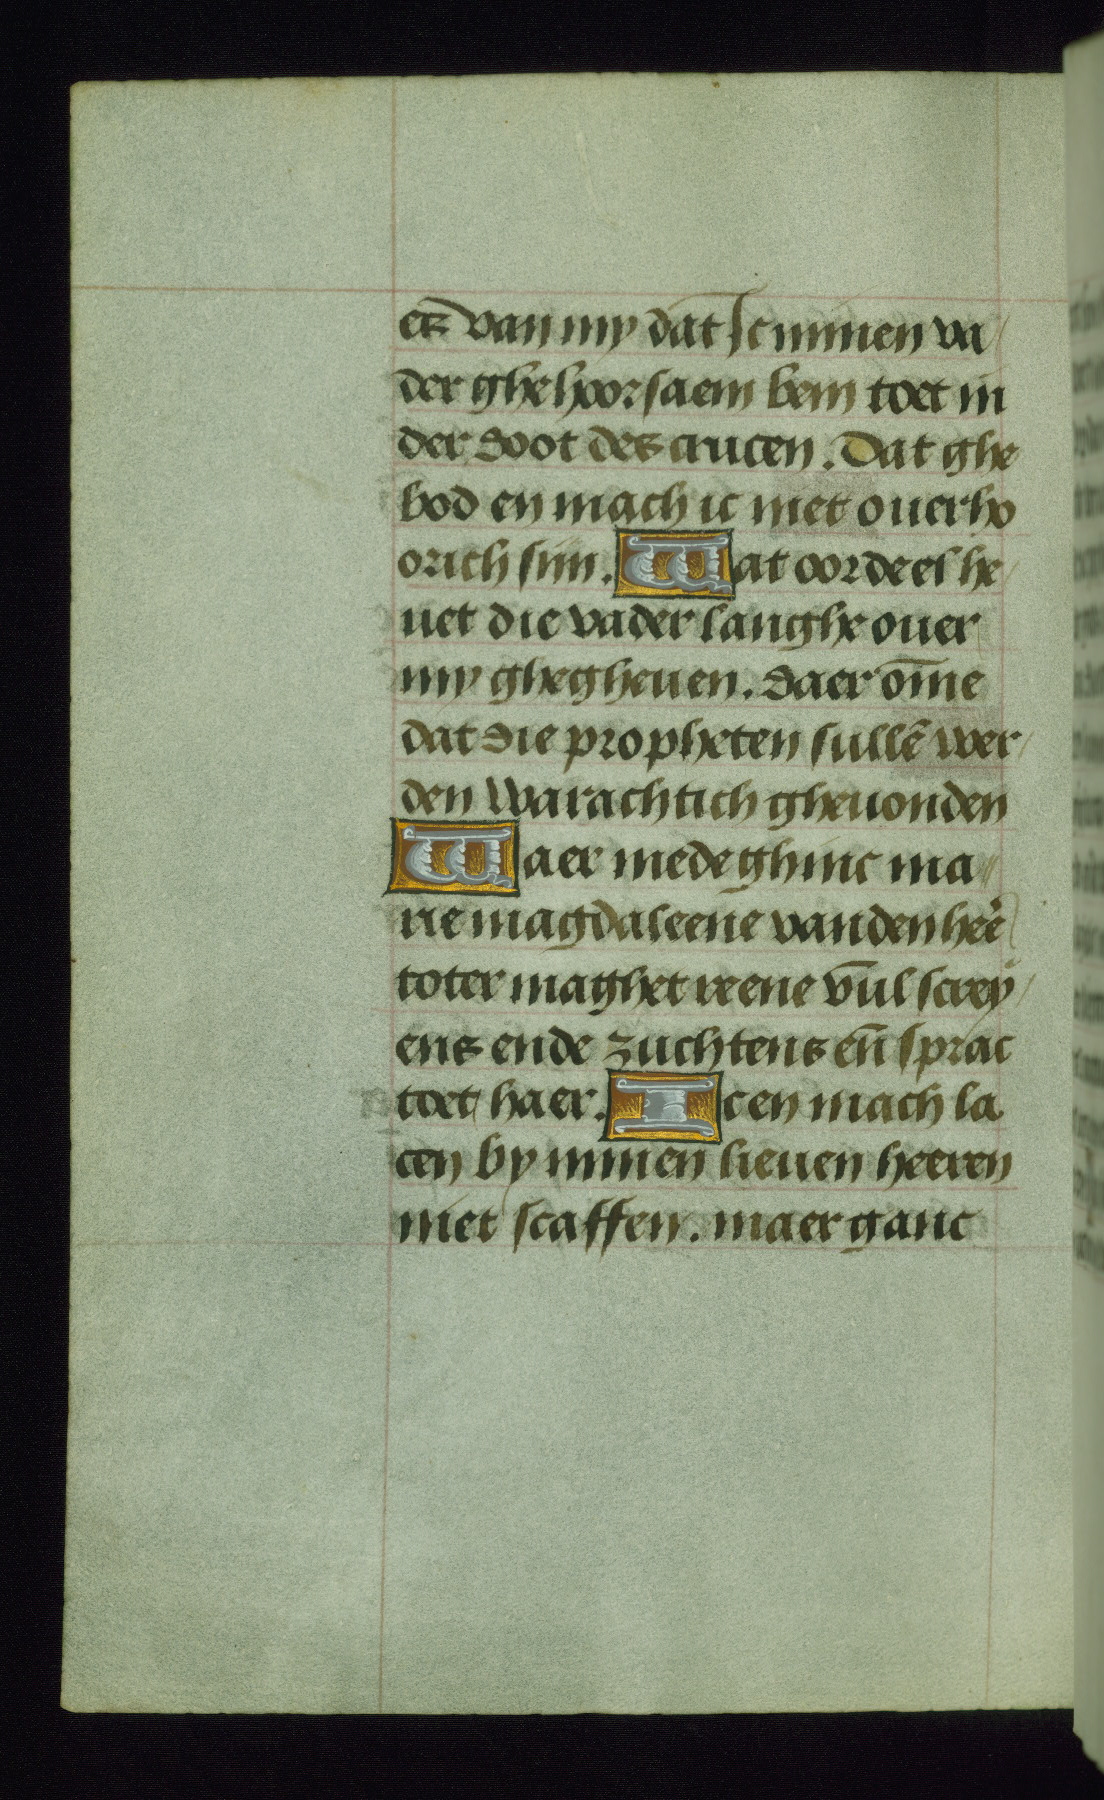 etz van my dat Ic minen va
der ghehoorsaem bem toet in
der doot des crucen. Dat ghe
bod en mach ic niet ouerho
orich siin. Wat oordeel he
uet die vader langhe ouer
my ghegheuen. daer om̄e
dat die propheten sullē wer
den warachtich gheuonden
Waer mede ghinc ma
rie magdaleene vanden heē
toter maghet reene v̄ul screy
ens ende zuchtens eñ sprac
toet haer. Ic en mach la
cen by minen lieuen heeren
niet scaffen. maer ganc